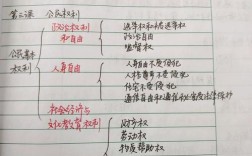 第三课 公民权利
公民基本
权利
政治权利
和自由
选举权和被选举权
政治自由
监督权
人身自由
人身自由不受侵犯
人格尊严不受侵犯
住宅不受侵犯
通信自由和通信秘密受法律保护
社会经济与
文化教育权利
财产权
劳动权
物质帮助权